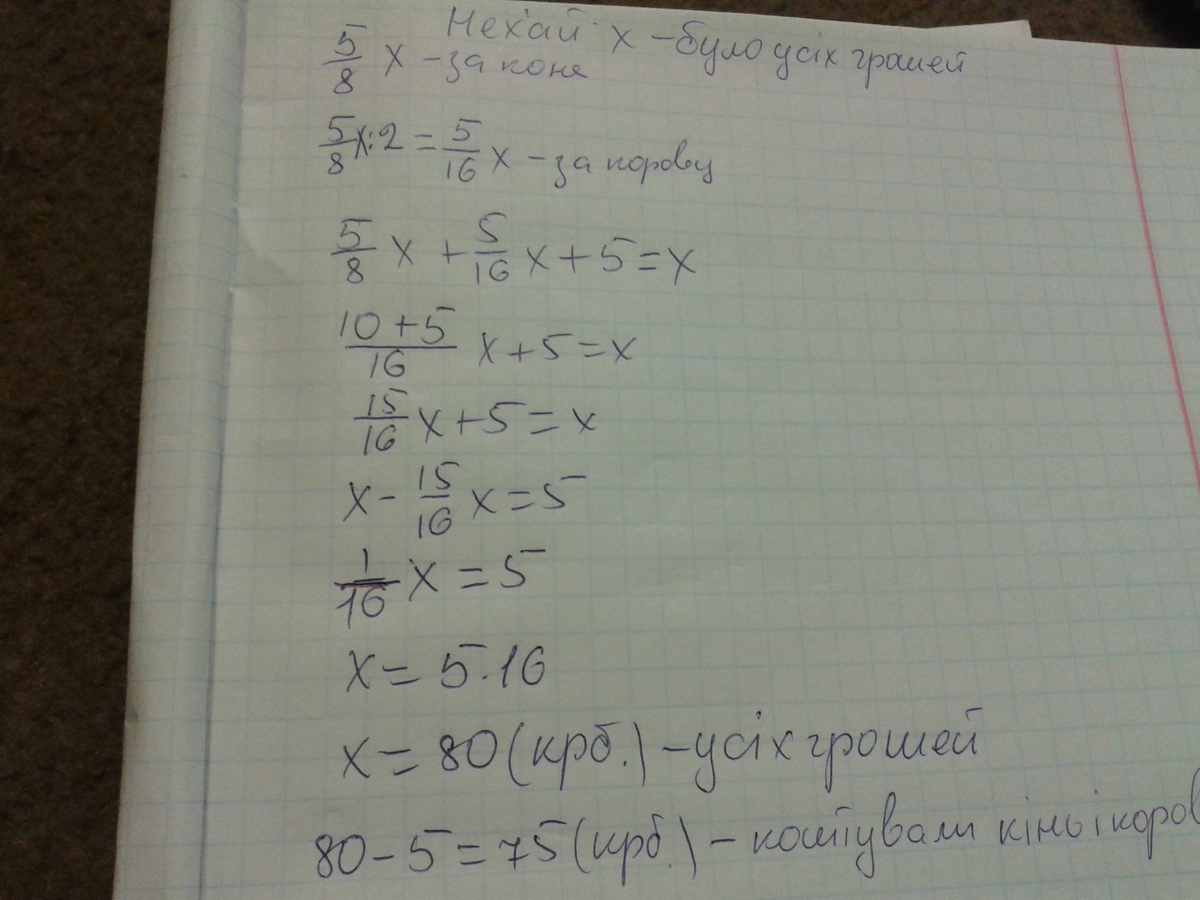 Нехай х – було усіх грошей
5/8 х – за коня
5/8 х : 2 = 5/16 х – за корову
5/8 х + 5/16 х + 5 = х
10 + 5/16 х + 5 = х
15/16 х + 5 = х
х – 15/16 х = 5
1/16 х = 5
х = 5 · 16
х = 80 (крб.) – усіх грошей
80 – 5 = 75 (крб.) – коштували кінь і коров